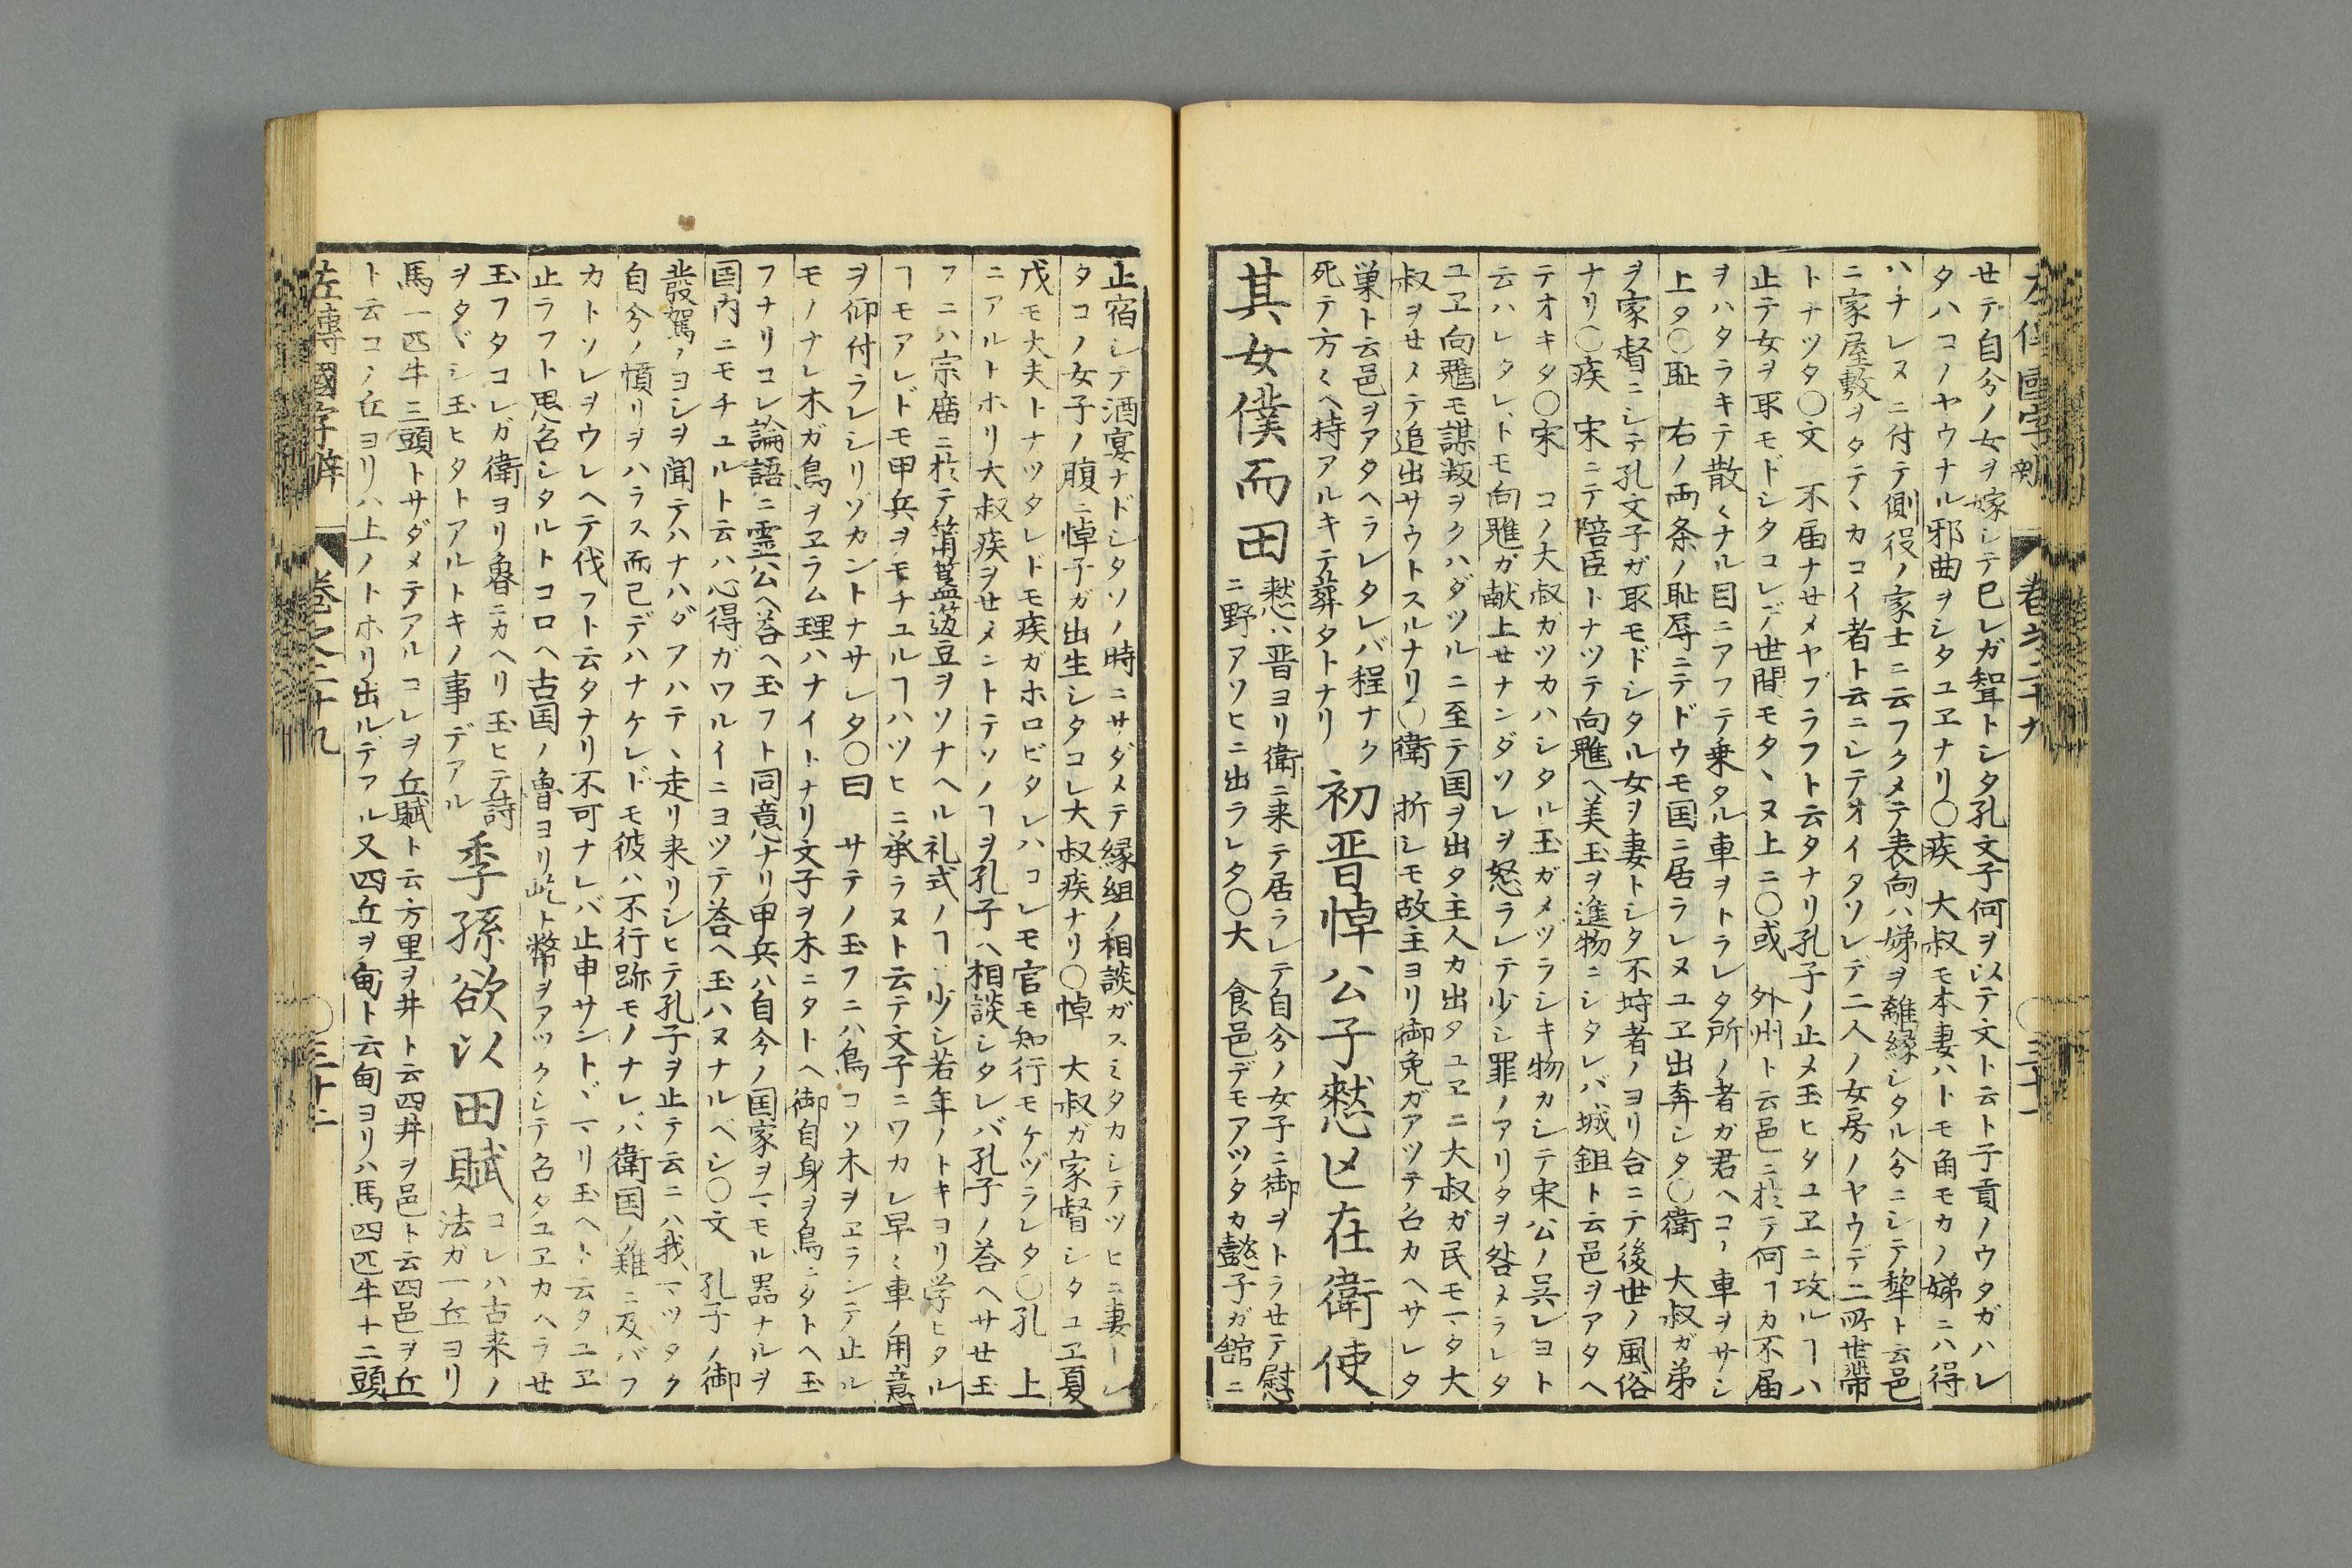 左傳國字辯 卷之二十九 〇三十一
セテ自分ノ女ヲ嫁シテ已レガ聟トシタ孔文子何ヲ以テ文ト云ト子貢ノウタガハレ
タハコノヤウナル邪曲ヲシタユヱナリ〇疾 大叔モ本妻ハトモ角モカノ娣ニハ得
ハナレヌニ付テ側役ノ家士ニ云フクメテ表向ハ娣ヲ離縁シタル分ニシテ犂ト云邑
ニ家屋敷ヲタテヽカコイ者ト云ニシテオイタソレデ二人ノ女房ノヤウデ二所世帶
トナツタ〇文 不届ナセメヤブラフト云タナリ孔子ノ止メ玉ヒタユヱニ攻ルヿハ
止テ女ヲ取モドシタコレデ世間モタヽヌ上ニ〇或 外州ト云邑ニ於テ何ヿカ不届
ヲハタラキテ散〱ナル目ニアフテ乗タル車ヲトラレタ所ノ者ガ君ヘコノ車ヲサシ
上タ〇耻 右ノ両条ノ耻辱ニテドウモ国ニ居ラレヌユヱ出奔シタ〇衛 大叔ガ弟
ヲ家督ニシテ孔文子ガ取モドシタル女ヲ妻トシタ不埒者ノヨリ合ニテ後世ノ風俗
ナリ〇疾 宋ニテ陪臣トナツテ向魋ヘ美玉ヲ進物ニシタレバ城鉏ト云邑ヲアタヘ
テオキタ〇宋 コノ大叔ガツカハシタル玉ガメヅラシキ物カシテ宋公ノ呉レヨト
云ハレタレトモ向魋ガ献上セナンダソレヲ怒ラレテ少シ罪ノアリタヲ咎メラレタ
ユヱ向魋モ謀叛ヲクハダツルニ至テ国ヲ出タ主人カ出タユヱニ大叔ガ民モマタ大
叔ヲセメテ追出サウトスルナリ〇衛 折シモ故主ヨリ御免ガアツテ召カヘサレタ
巣ト云邑ヲアタヘラレタレバ程ナク
死テ方〱ヘ持アルキテ葬タトナリ
初晋悼公子憖亡在衛使
其女僕而田
憖ハ晋ヨリ衛ニ来テ居ラレテ自分ノ女子ニ御ヲトラセテ慰
ニ野アソヒニ出ラレタ〇大 食邑デモアツタカ懿子ガ舘ニ
止宿シテ酒宴ナドシタソノ時ニサダメテ縁組ノ相談ガスミタカシテツヒニ妻ーレ
タコノ女子ノ腹ニ悼子ガ出生シタコレ大叔疾ナリ〇悼 大叔ガ家督シタユヱ夏
戊モ大夫トナツタレドモ疾ガホロビタレハコレモ官モ知行モケヅラレタ〇孔 上
ニアルトホリ大叔疾ヲセメントテソノヿヲ孔子ヘ相談シタレバ孔子ノ荅ヘサセ玉
フニハ宗廟ニ於テ簠簋籩豆ヲソナヘル礼式ノヿハ少シ若年ノトキヨリ学ヒタル
ヿモアレドモ甲兵ヲモチユルヿハツヒニ承ラヌト云テ文子ニワカレ早〻車ノ用意
ヲ仰付ラレシリゾカントナサレタ〇曰 サテノ玉フニハ鳥コソ木ヲヱランテ止ル
モノナレ木ガ鳥ヲヱラム理ハナイトナリ文子ヲ木ニタトヘ御自身ヲ鳥ニタトヘ玉
フナリコレ論語ニ霊公ヘ荅ヘ玉フト同意ナリ甲兵ハ自今ノ国家ヲマモル器ナルヲ
国内ニモチユルト云ハ心得ガワルイニヨツテ荅ヘ玉ハヌナルベシ〇文 孔子ノ御
發駕ノヨシヲ聞テハナハダアハテヽ走リ来リシヒテ孔子ヲ止テ云ニハ我マツタク
自分ノ憤リヲハラス而已デハナケレドモ彼ハ不行跡モノナレバ衛国ノ難ニ及バフ
カトソレヲウレヘテ伐フト云タナリ不可ナレバ止申サントヽマリ玉ヘト云タユヱ
止ラフト思召シタルトコロヘ古国ノ魯ヨリ此ト幣ヲアツクシテ召タユヱカヘラセ
玉フタコレガ衛ヨリ魯ニカヘリ玉ヒテ詩
ヲタヾシ玉ヒタトアルトキノ事デアル
季孫欲以田賦
コレハ古来ノ
法ガ一丘ヨリ
馬一匹牛三頭トサダメテアルコレヲ丘賦ト云方里ヲ井ト云四井ヲ邑ト云四邑ヲ丘
ト云コノ丘ヨリハ上ノトホリ出ルデアル又四丘ヲ甸ト云甸ヨリハ馬四匹牛十二頭
左傳國字辯 卷之二十九 〇三十二